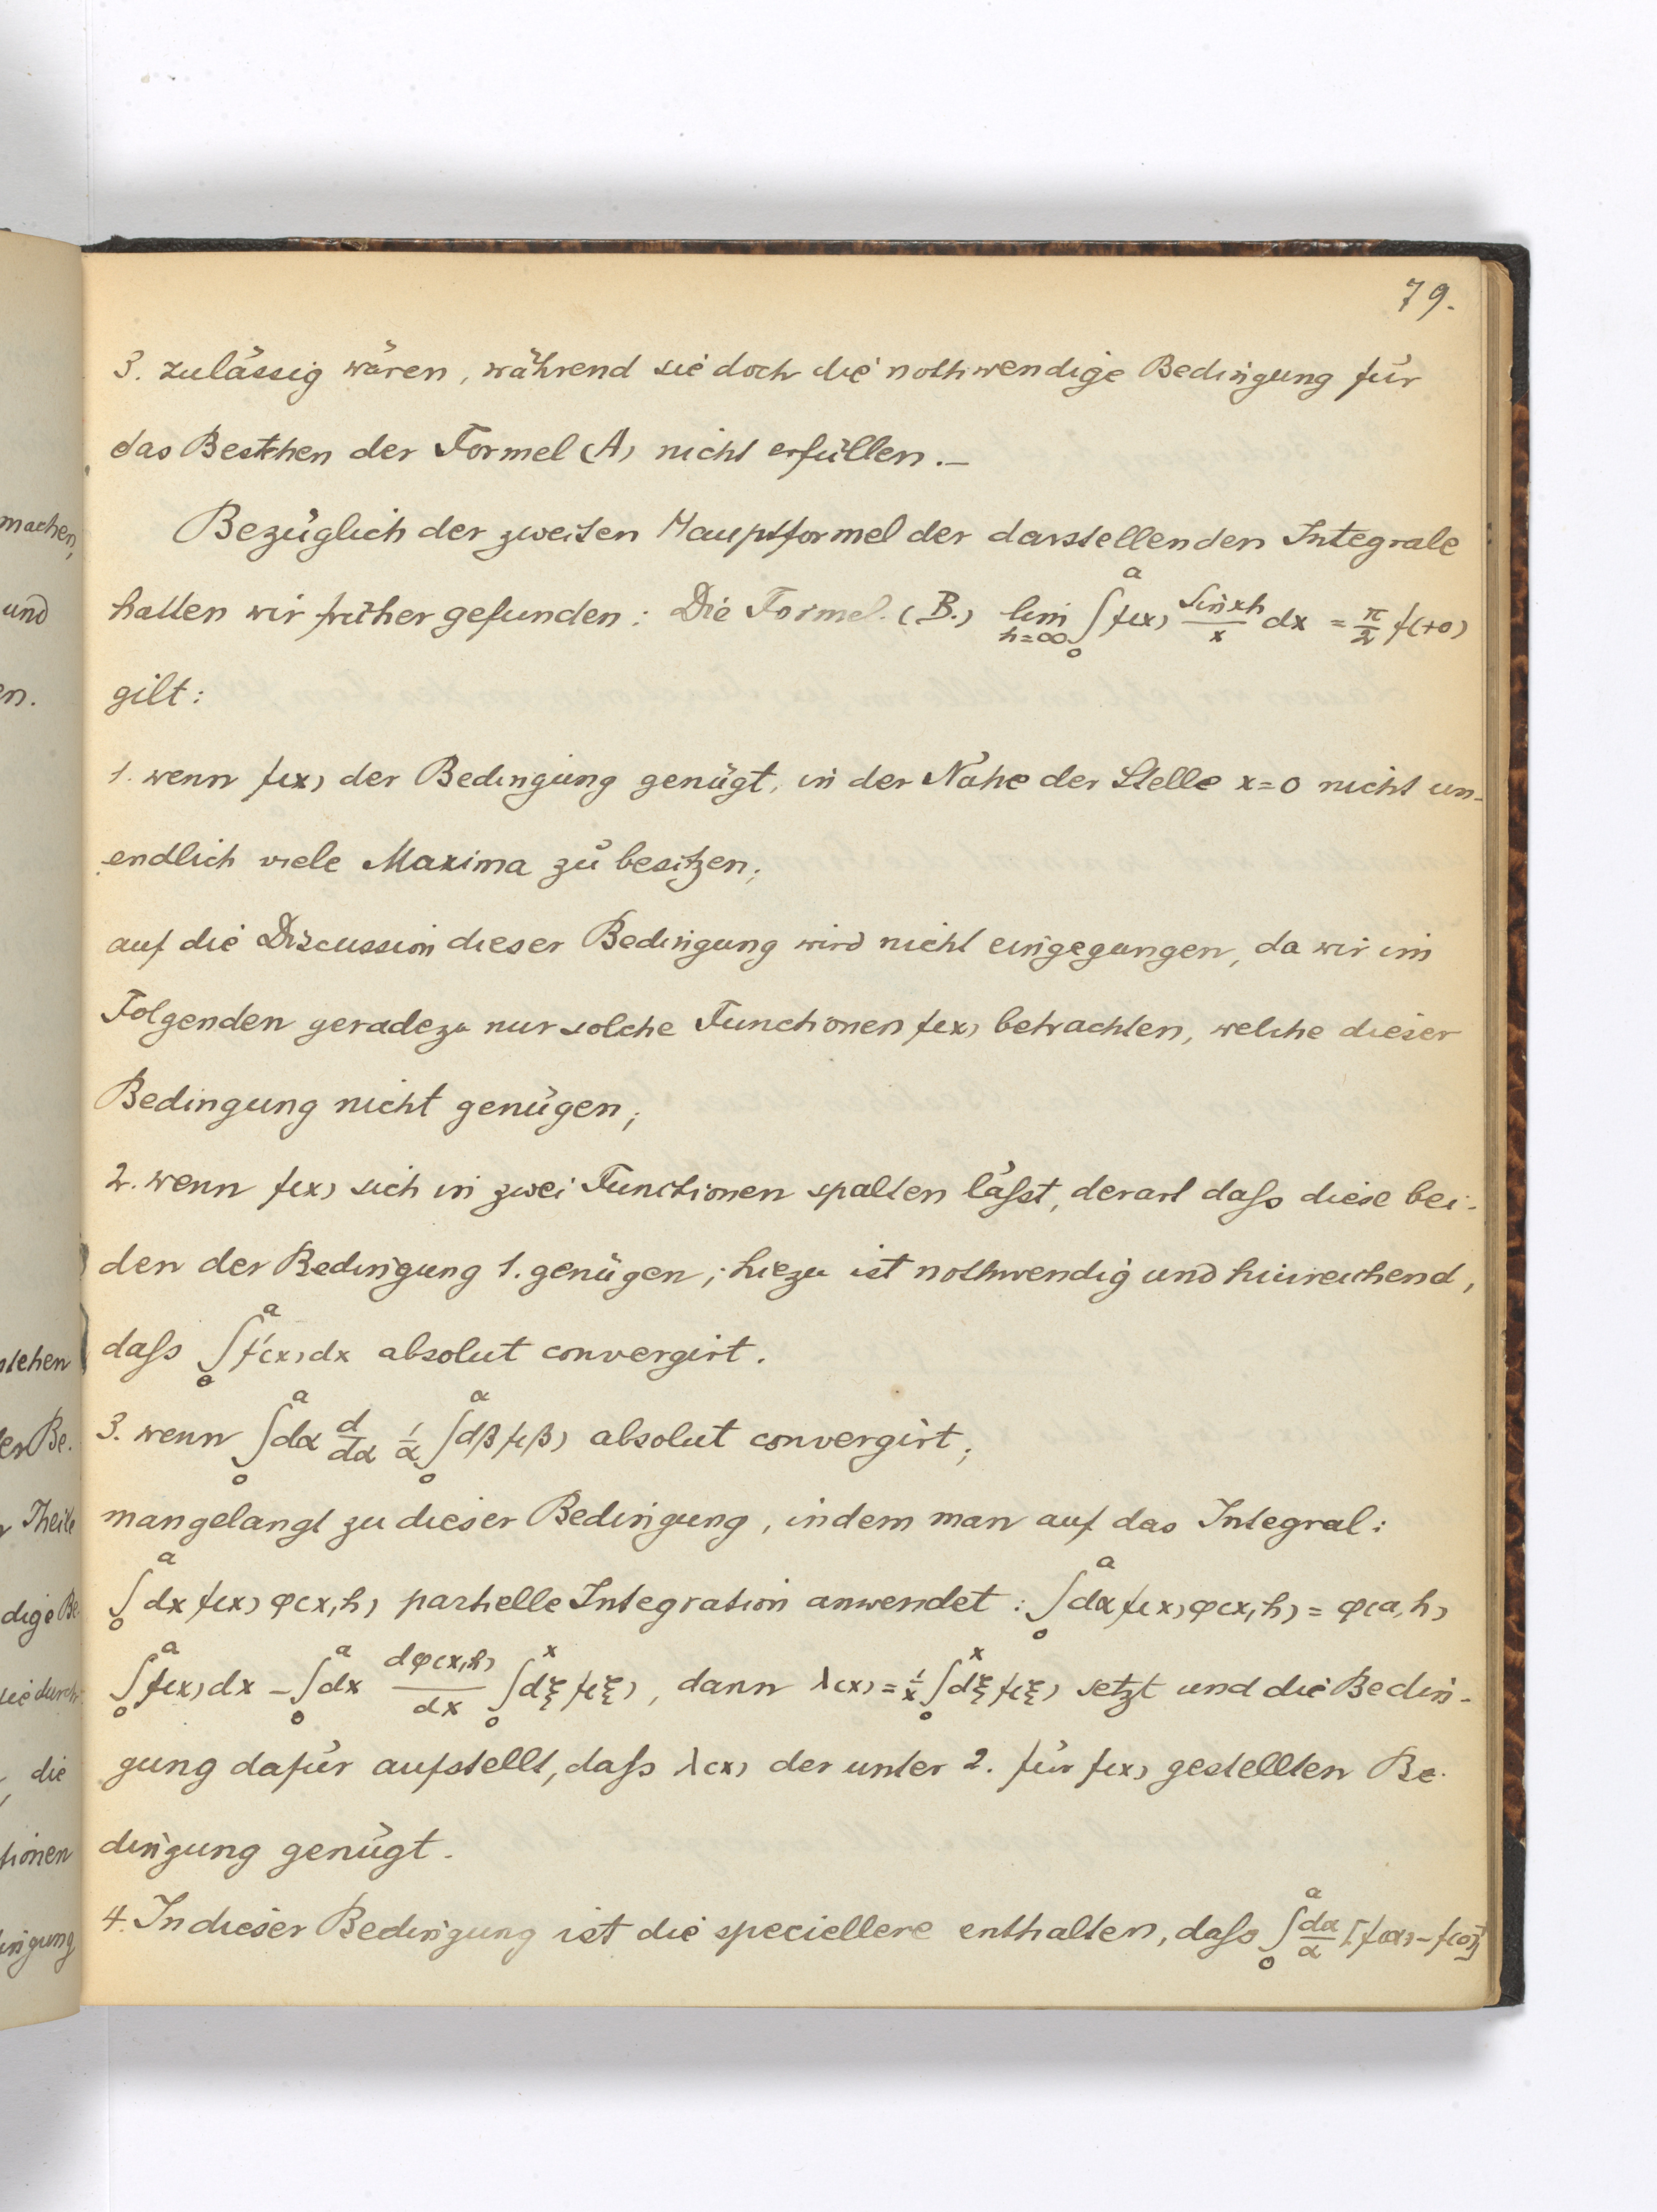 79.
3. zulässig wären, während sie doch die nothwendige Bedingung für
das Bestehen der Formel (A) nicht erfüllen.—
Bezüglich der zweiten Hauptformel der darstellenden Integrale
hatten wir früher gefunden: Die Formel (B.) lim_{h=∞} ∫_0^a f(x) \frac{sin xh}{x} dx = \frac{π}{2} f(+0)
gilt:
1. wenn f(x) der Bedingung genügt, in der Nähe der Stelle x=0 nicht un-
endlich viele Maxima zu besitzen;
auf die Discussion dieser Bedingung wird nicht eingegangen, da wir im
Folgenden geradezu nur solche Functionen f(x) betrachten, welche dieser
Bedingung nicht genügen;
2. wenn f(x) sich in zwei Functionen spalten läſst, derart daſs diese bei-
den der Bedingung 1. genügen; hiezu ist nothwendig und hinreichend,
daſs ∫_0^a f'(x) dx absolut convergirt.
3. wenn ∫_0^a dα \frac{d}{dα} \frac{1}{α} ∫_0^α dβ f(β) absolut convergirt;
man gelangt zu dieser Bedingung, indem man auf das Integral:
∫_0^a dx f(x) φ(x,h) partielle Integration anwendet: ∫_0^a dx f(x) φ(x,h) = φ(a,h)
∫_0^a f(x) dx − ∫_0^a dx \frac{dφ(x,h)}{dx} ∫_0^x dξ f(ξ), dann λ(x) = \frac{1}{x} ∫_0^x dξ f(ξ) setzt und die Bedin-
gung dafür aufstellt, daſs λ(x) der unter 2. für f(x) gestellten Be-
dingung genügt.
4. In dieser Bedingung ist die speciellere enthalten, daſs ∫_0^a \frac{dα}{α} [f(α) − f(0)]
machen,
und
en.
stehen
der Be-
Theile
dige Be-
sie durch
, die
tionen
dingung